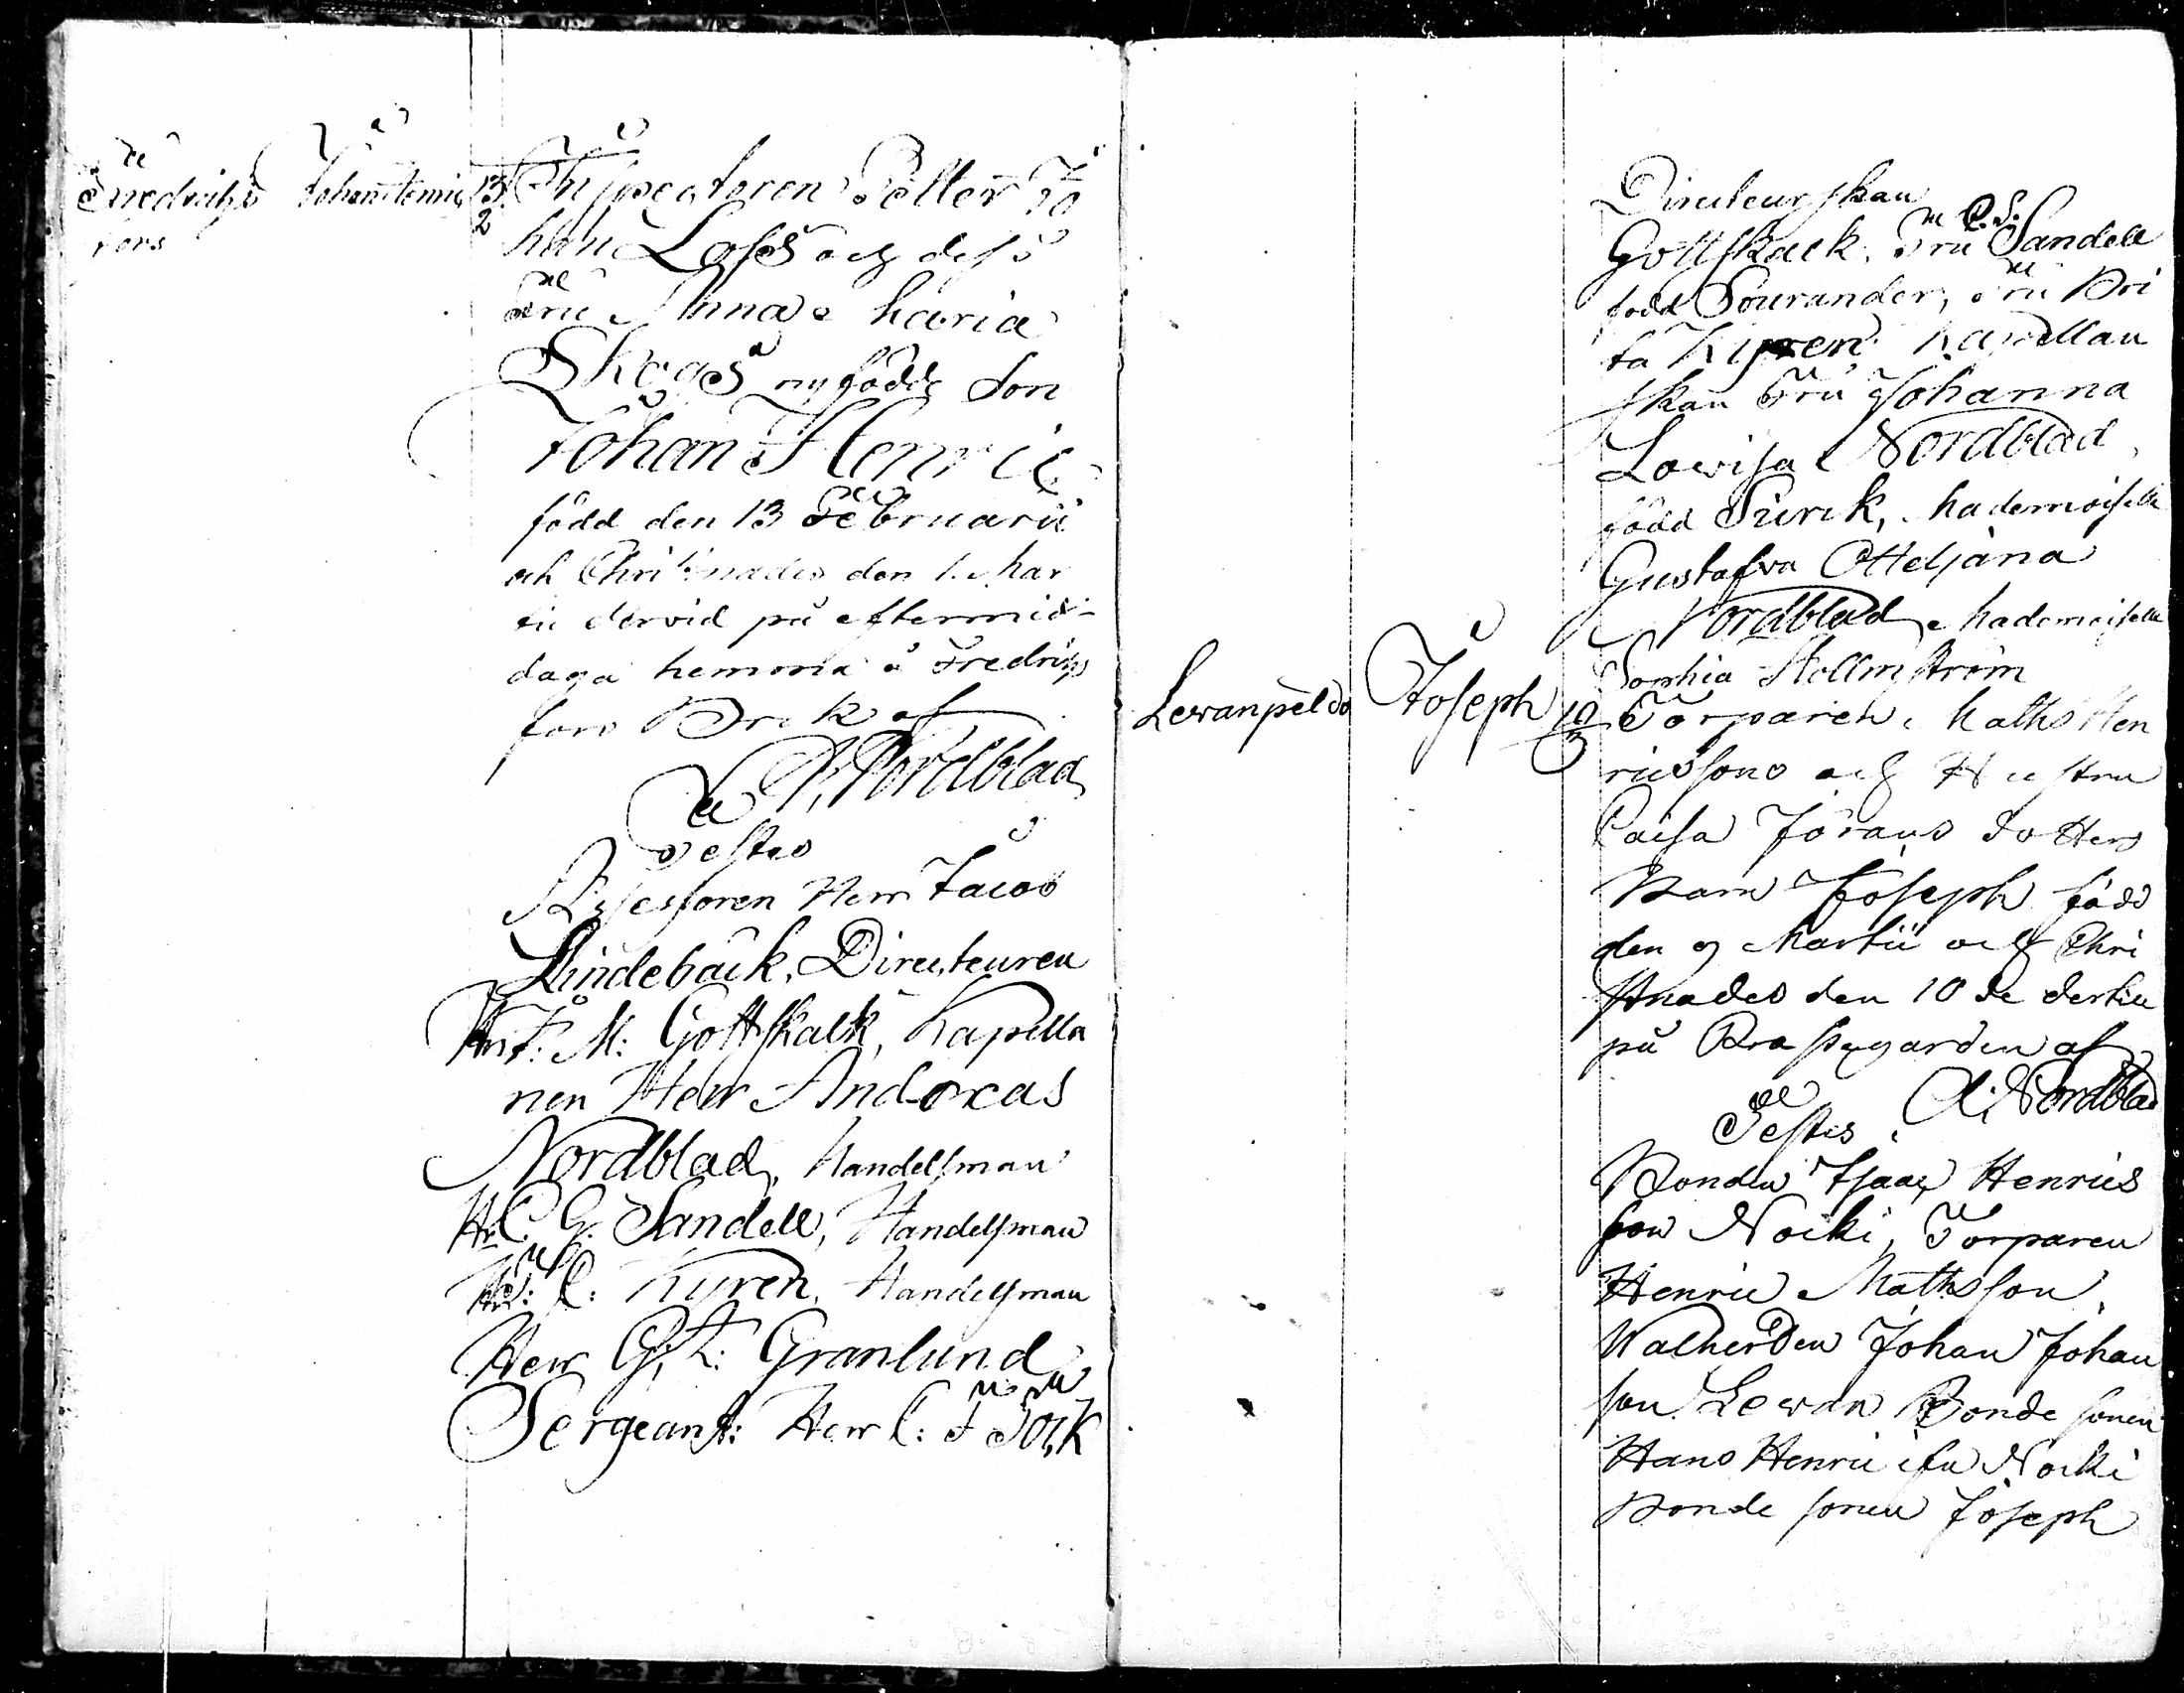 Fredrichs Johan Henric 13/2
fors
Inspectoren Petter Jo
han Loss och dess
Fru Anna Maria
Skogs nyfödde Son
Johan Henric
född den 13 Februarii
och Christnades den 1. Mar
tii dervid på eftermid-
daga hemma å Fredrichs
fors Bruk af
A. Nordblad
Testes
Assessoren Herr Jacob
Lindebäck, Directeuren
Hr J: M: Gottskalk, Kapella
nen Herr Andreas
Nordblad, Handelsman
Hr C. G. Sandell, Handelsman
Hr: C: Kyren, Handelsman
Herr G: L: Granlund
Sergeant: Herr C: F
Directeurskan
Gottskalk. Fru C. S: Sandell
född Sourander, Fru Bri
ta Kyren, Kapellan
skan Fru Johanna
Lovisa Nordblad
född Turck, Mademoiselle
Gustafva Otteljana
Nordblad, Mademoiselle
Sophia Hollmström
Levanpeldo Joseph 10/3 Torparen Maths Hen
ricssons och Hustru
Caisa Jörans dotters
Barn Joseph född
den 9 Martii och Chri
stnades den 10 de dertill
på Prestegården af
A: Nordblad
Testes
Bonden Isaac Henrics
son Nocki, Torparen
Henric Mathsson
Johan Johan
son Levan Bonde sonen
Hans Henric Nocki
Bonde sonen Joseph